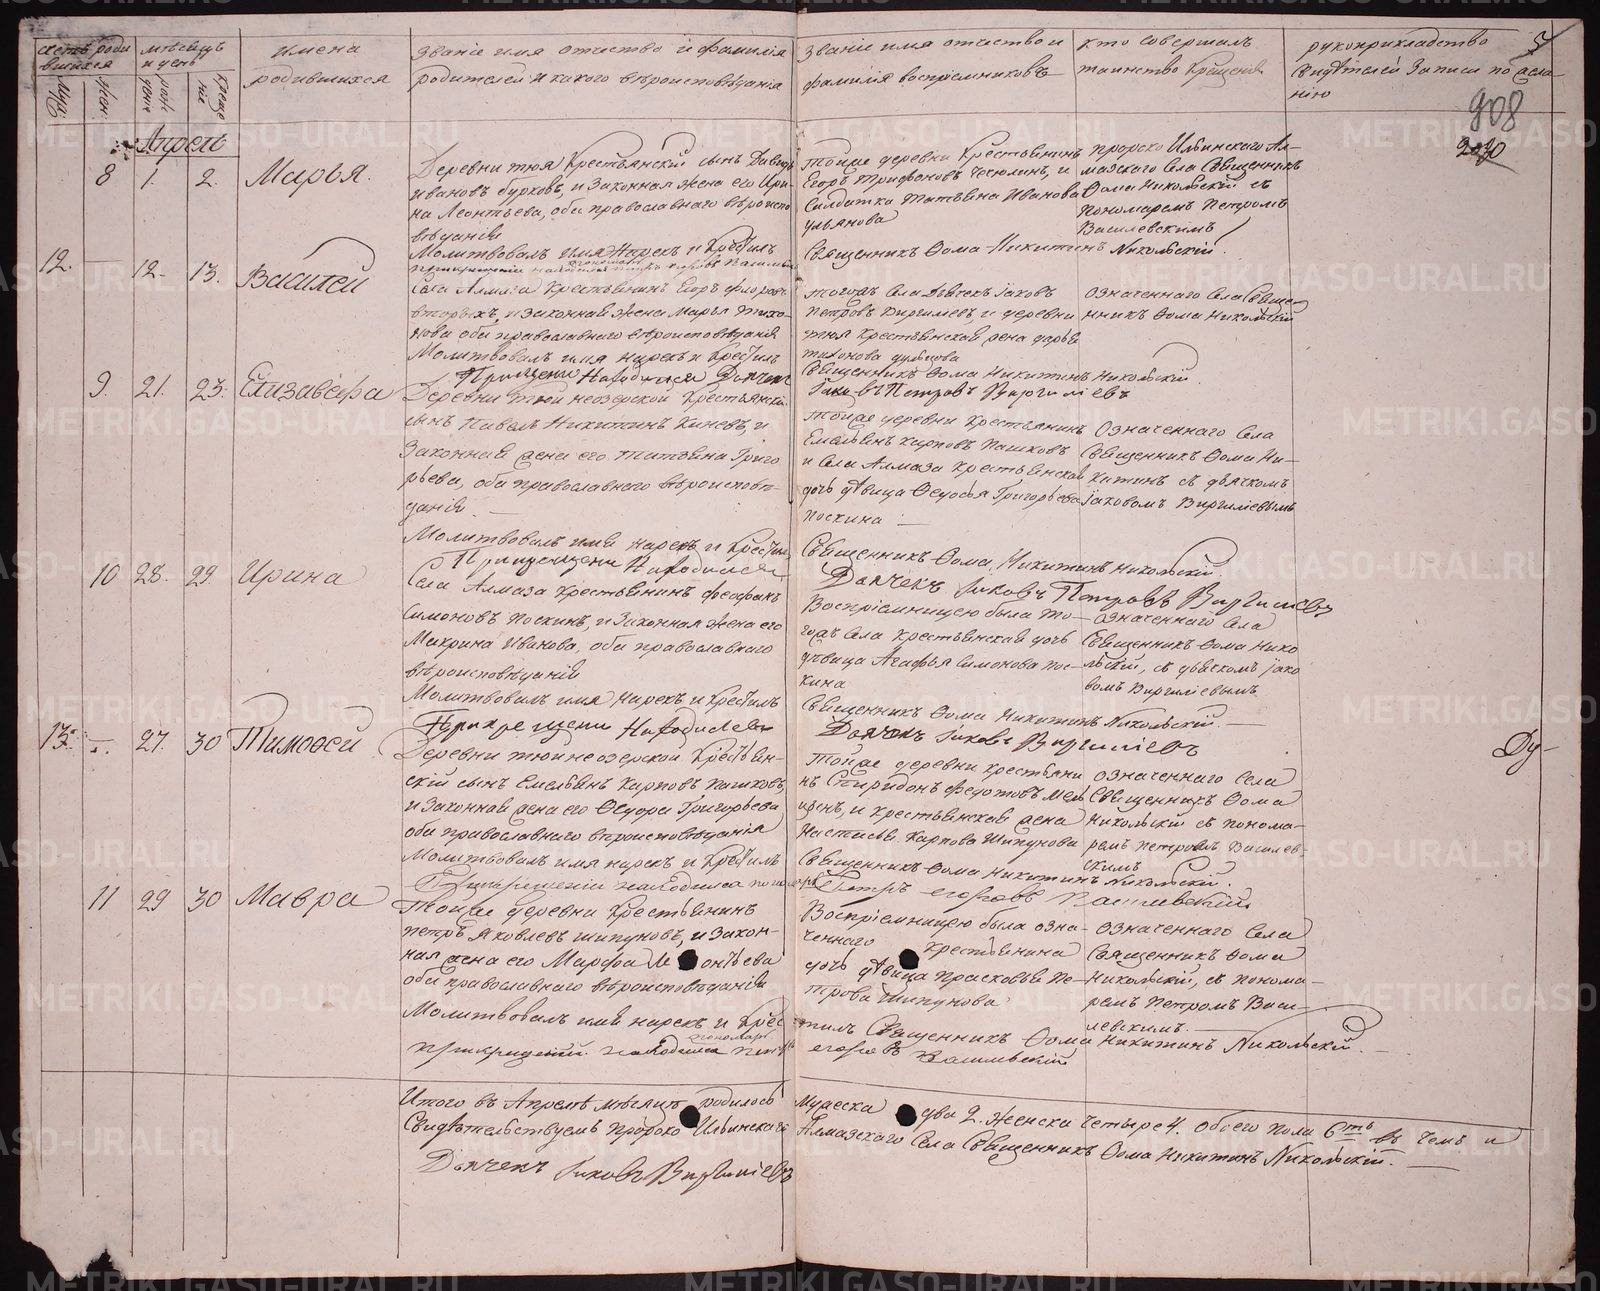 счетъ роди
вшихся
Муж:
Жен:
мѣсяцъ
и день
рож
дение
креще
ние
имена
родившихся
Званіе имя отчество и фамилія
родителей и какого вѣроисповѣданія
Званіе имя отчество и
фамилія воспріемниковъ
кто совершалъ
таинство крещенія
рукоприкладство
свидѣтелей записи по жела-
нію
908
Апрель
8 1. 2. Марья.
Деревни тюя крестьянскій сынъ Давыдъ
Ивановъ Бурковъ, и законная жена его Ири-
на Леонтьева, оба православнаго вѣроиспо
вѣданія
Молитвовалъ имя нарекъ и крестилъ
Тойже деревни крестьянинъ
Егоръ Трифоновъ и
Солдатка Татьяна Иванова
Ульянова
Священникъ Ѳома Никитинъ Никольскій
пророко Ильинскаго Ал-
мазскаго села Священникъ
Ѳома Никольскій съ
пономаремъ Петромъ
Василевскимъ
12. — 12. 13. Василей
Села Алмаза крестьянинъ Егоръ Флоровъ
вторыхъ, и законная жена Марья Тихо-
нова оба православнаго вѣроисповѣданія
Молитвовалъ имя нарекъ и крестилъ
тогожъ села дьячекъ Іаковъ
Петровъ Виргиліевъ, и деревни
тюя крестьянская жена Дарья
Тихонова
Священникъ Ѳома Никитинъ Никольскій.
означеннаго села Священ
никъ Ѳома Никольскій
9. 21. 23. Елизавефа
Прикрещени находился Дьячекъ
Іаковъ Петровъ Виргиліевъ
Деревни тюй неозерской крестьянскій
сынъ Павелъ Никитинъ Киневъ, и
законная жена его Татьяна Григо
рьева, оба православнаго вѣроисповѣ-
данія. —
Молитвовалъ имя нарекъ и крестилъ
тойже деревни крестьянинъ
Емельянъ Карповъ Пашковъ
и села Алмаза крестьянская
дочь дѣвица Ѳедосья Григорьева
Поскина —
Священникъ Ѳома Никитинъ Никольскій.
означеннаго села
Священникъ Ѳома Ни-
китинъ съ дьячкомъ
Іаковомъ Виргиліевымъ
10 28. 29. Ирина
Прикрещени находился
Дьячекъ Іаковъ Петровъ Виргилиевъ
Села Алмаза крестьянинъ Феофанъ
Симоновъ Поскинъ, и законная жена его
Макрина Иванова, оба православнаго
вѣроисповѣданія
Молитвовалъ имя нарекъ и крестилъ
Воспріемницею была то-
гожъ села крестьянская дочь
дѣвица Агафья Симонова Пос-
кина
Священникъ Ѳома Никитинъ Никольскій. —
означеннаго села
Священникъ Ѳома Нико
льскій, съ дьячкомъ Іако
вомъ Виргиліевымъ
13. — 27. 30 Тимоѳей
Прикрещени находился
Дьячекъ Іаковъ Виргиліевъ
Ду-
Деревни тюй неозерской крестьян-
скій сынъ Емельянъ Карповъ Пашковъ,
и законная жена его Ѳедора Григорьева
оба православнаго вѣроисповѣданія
Молитвовалъ имя нарекъ и крестилъ
Тойже деревни крестьяни
нъ Спиридонъ Федотовъ
и крестьянская жена
Настасья Карпова Шипунова
Священникъ Ѳома Никитинъ Никольскій.
означеннаго села
Священникъ Ѳома
Никольскій съ понома-
ремъ Петромъ Василев-
скимъ
11 29 30 Мавра
Прикрещеніи находился пономарь
Петръ Егоровъ Василевскій
Тойже деревни крестьянинъ
Петръ Яковлевъ Шипуновъ, и закон-
ная жена его Марфа Леонтьева
оба православнаго вѣроисповѣданія
Молитвовалъ имя нарекъ и крес
тилъ Священникъ Ѳома Никитинъ Никольскій. —
Воспріемницею была озна-
ченнаго крестьянина
дочь дѣвица Прасковья Пе-
трова Шипунова
означеннаго села
Священникъ Ѳома
Никольскій, съ понома-
ремъ Петромъ Васи-
левскимъ. —
прикрещеніи находился пономарь Петръ
Егоровъ Василевскій
Итого въ Апрелѣ мѣсяцѣ родилось мужеска два 2. женска четыре 4. обоего пола 6ть въ чемъ и
Свидѣтельствуемъ пророко Ильинскаго Алмазскаго села Священникъ Ѳома Никитинъ Никольскій. —
Дьячекъ Іаковъ Виргиліевъ
METRIKI.GASO-URAL.RU